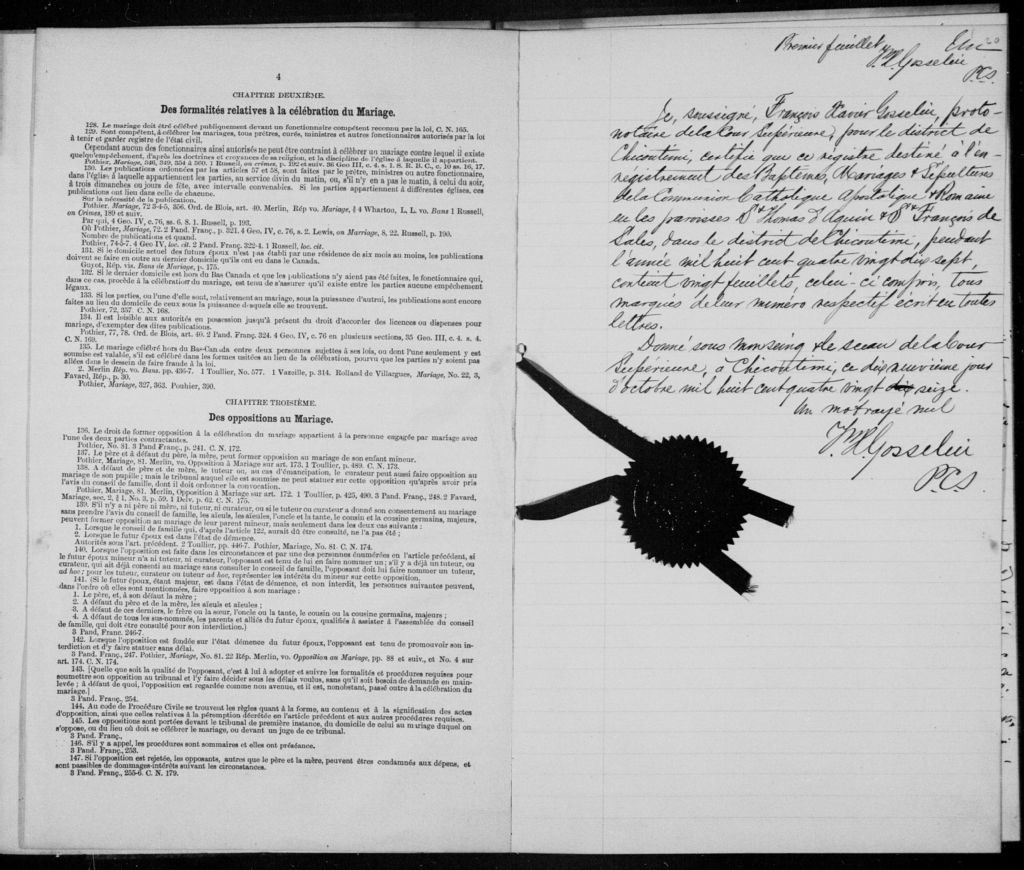 4
CHAPITRE DEUXIÈME.
Des formalités relatives à la célébration du Mariage.
128. Le mariage doit être célébré publiquement devant un fonctionnaire compétent reconnu par la loi, C. N. 165.
129. Sont compétent, à célébrer les mariages, tous prêtres, curés, ministres et autres fonctionnaires autorisés par la loi
à tenir et garder registre de l'état civil.
Cependant aucun des fonctionnaires ainsi autorisés ne peut être contraint à célébrer un mariage contre lequel il existe
quelqu'empêchement, d'après les doctrines et croyances de sa religion, et la discipline de l'église à laquelle il appartient.
Pothier, Mariage, 346, 349, 354 à 360. 1 Russell, on crimes, p. 192 et suiv. 36 Geo III, c. 4, s. 1. S. R. B. C., c. 10 ss. 16, 17.
130. Les publications ordonnées par les articles 57 et 58, sont faites par le prêtre, ministre ou autre fonctionnaire,
dans l'église à laquelle appartiennent les parties, au service divin du matin, ou, s'il n'y en a pas le matin, à celui du soir,
à trois dimanches ou jours de fête, avec intervalle convenables. Si les parties appartiennent à différentes églises, ces
publications ont lieu dans celle de chacune.
Sur la nécessité de la publication.
Pothier, Mariage, 72 3-4-5, 356. Ord. de Blois, art. 40. Merlin, Rép vo. Mariage, § 4 Wharton, L. L. vo. Bans 1 Russell,
on Crimes, 189 et suiv.
Par qui, 4 Geo. IV, c. 76, ss. 6. 8. 1. Russell, p. 193.
Où Pothier, Mariage, 72. 2 Pand. Franç., p. 321. 4 Geo. IV, c. 76, s. 2. Lewis, on Marriage, 8, 22. Russell, p. 190.
Nombre de publications et quand.
Pothier, 74-5-7. 4 Geo IV, loc. cit. 2 Pand. Franç. 322-4. 1 Russell, loc. cit.
131. Si le domicile actuel des futurs époux n'est pas établi par une résidence de six mois au moins, les publications
doivent se faire en outre au dernier domicile qu'ils ont eu dans le Canada.
Guyot, Rép. vis. Bans de Mariage, p. 175.
132. Si le dernier domicile est hors du Bas Canada et que les publications n'y aient pas été faites, le fonctionnaire qui,
dans ce cas, procède à la célébration du mariage, est tenu de s'assurer qu'il existe entre les parties aucune empêchement
légaux.
133. Si les parties, ou l'une d'elle sont, relativement au mariage, sous la puissance d'autrui, les publications sont encore
faites au lieu du domicile de ceux sous la puissance desquels elle se trouvent.
Pothier, 72, 357. C. N. 168.
134. Il est loisible aux autorités en possession jusqu'à présent du droit d'accorder des licences ou dispenses pour
mariage, d'exempter des dites publications.
Pothier, 77, 78. Ord. de Blois, art. 40. 2 Pand. Franç. 324. 4 Geo. IV, c. 76 en plusieurs sections, 35 Geo. III. c. 4. s. 4.
C. N. 169.
135. Le mariage célébré hors du Bas-Canada entre deux personnes sujettes à ses lois, ou dont l'une seulement y est
soumise est valable, s'il est célébré dans les formes usitées au lieu de la célébration, pourvu que les parties n'y soient pas
allées dans le dessein de faire fraude à la loi.
2. Merlin Rép. vo. Bans. pp. 436-7. 1 Toullier, No. 577. 1 Vazeille, p. 314. Rolland de Villargues, Mariage, No. 22, 3,
Favard, Rép., p. 30.
Pothier, Mariage, 327, 363. Pouhier, 390.
CHAPITRE TROISIÈME.
Des oppositions au Mariage.
136. Le droit de former opposition à la célébration du mariage appartient à la personne engagée par mariage avec
l'une des deux parties contractantes.
Pothier, No. 81. 3 Pand Franç., p. 241. C. N. 172.
137. Le père et à défaut du père, la mère, peut former opposition au mariage de son enfant mineur.
Pothier, Mariage, 81. Merlin, vo. Opposition à Mariage sur art. 173. 1 Toullier, p. 489. C. N. 173.
138. A défaut de père et de mère, le tuteur ou, au cas d'émancipation, le curateur peut aussi faire opposition au
mariage de son pupille; mais le tribunal auquel elle est soumise ne peut statuer sur cette opposition qu'après avoir pris
l'avis du conseil de famille, dont il doit ordonner la convocation.
Pothier, Mariage, 81. Merlin, Opposition à Mariage sur art. 172. 1 Toullier, p. 425, 490, 3 Pand. Franç., 248. 2 Favard,
Mariage, sec. 2, § 1, No. 3, p. 59. 1 Delv. p. 62. C. N. 175.
139. S'il n'y a ni père ni mère, ni tuteur, ni curateur, ou si le tuteur ou curateur a donné son consentement au mariage
sans prendre l'avis du conseil de famille, les aïeuls, les aïeules, l'oncle et la tante, le cousin et la cousine germains, majeurs,
peuvent former opposition au mariage de leur parent mineur, mais seulement dans les deux cas suivants:
1. Lorsque le conseil de famille qui, d'après l'article 122, aurait dû être consulté, ne l'a pas été;
2. Lorsque le futur époux est dans l'état de démence.
Autorités sous l'art. précédent. 2 Toullier, pp. 446-7. Pothier, Mariage, No. 81. C. N. 174.
140. Lorsque l'opposition est faite dans les circonstances et par une des personnes énumérées en l'article précédent, si
le futur époux mineur n'a ni tuteur, ni curateur, l'opposant est tenu de lui en faire nommer un; s'il y a déjà un tuteur, ou
curateur, qui ait déjà consenti au mariage sans consulter le conseil de famille, l'opposant doit lui faire nommer un tuteur,
ad hoc; pour les tuteur, curateur ou tuteur ad hoc, représenter les intérêts du mineur sur cette opposition.
141. (Si le futur époux, étant majeur, est dans l'état de démence, et non interdit, les personnes suivantes peuvent,
dans l'ordre où elles sont mentionnées, faire opposition à son mariage:
1. Le père, et, à son défaut la mère;
2. A défaut du père et de la mère, les aïeuls et aïeules;
3. A défaut de ces derniers, le frère ou la sœur, l'oncle ou la tante, le cousin ou la cousine germains, majeurs;
4. A défaut de tous les sus-nommés, les parents et alliés du futur époux, qualifiés à assister à l'assemblée du conseil
de famille, qui doit être consulté pour son interdiction.)
3 Pand, Franc. 246-7.
142. Lorsque l'opposition est fondée sur l'état démence du futur époux, l'opposant est tenu de promouvoir son in-
terdiction et d'y faire statuer sans délai.
3 Pand. Franç., 247. Pothier, Mariage, No. 81. 22 Rép. Merlin, vo. Opposition au Mariage, pp. 88 et suiv., et No. 4 sur
art. 174. C. N. 174.
143. [Quelle que soit la qualité de l'opposant, c'est à lui à adopter et suivre les formalités et procédures requises pour
soumettre son opposition au tribunal et l'y faire décider sous les délais voulus, sans qu'il soit besoin de demande en main-
levée; à défaut de quoi, l'opposition est regardée comme non avenue, et il est, nonobstant, passé outre à la célébration du
mariage.]
3 Pand. Franç., 254.
144. Au code de Procédure Civile se trouvent les règles quant à la forme, au contenu et à la signification des actes
d'opposition, ainsi que celles relatives à la péremption décrétée en l'article précédent et aux autres procédures requises.
145. Les oppositions sont portées devant le tribunal de première instance, du domicile de celui au mariage duquel on
s'oppose, ou du lieu où doit se célébrer le mariage, ou devant un juge de ce tribunal.
3 Pand. Franç.,
146. S'il y a appel, les procédures sont sommaires et elles ont préséance.
3 Pand. Franç., 253.
147. Si l'opposition est rejetée, les opposants, autres que le père et la mère, peuvent être condamnés aux dépens, et
sont passibles de dommages-intérêts suivant les circonstances.
3 Pand. Franç., 255-6. C. N. 179.
Premier feuillet Un
F. X. Gosselin
P.C.S.
Je, soussigné, François Xavier Gosselin, proto-
notaire de la Cour Supérieure, pour le district de
Chicoutimi, certifie que ce registre destiné à l'en-
registrement des Baptêmes, Mariages & Sépultures
de la Communion Catholique Apostolique & Romaine
en les paroisses St Thomas d'Aquin & St François de
Sales, dans le district de Chicoutimi, pendant
l'année mil huit cent quatre vingt dix sept
contient vingt feuillets, celui-ci compris, tous
marqués de leur numéro respectif écrit en toutes
lettres.
Donné sous mon seing & le sceau de la Cour
Supérieure, à Chicoutimi, ce dix neuvième jour
d'octobre mil huit cent quatre vingt dix seize.
Un mot rayé nul
F. X. Gosselin
P.C.S.